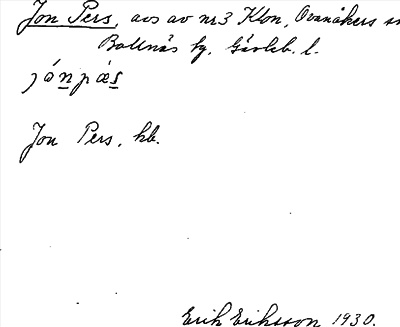 Jon Pers, avs av nr 3 Klon, Ovanåkers sn
Bollnäs tg, Gävleb. l.
jónpæ´s
Jon Pers, hb.
Erik Eriksson 1930.